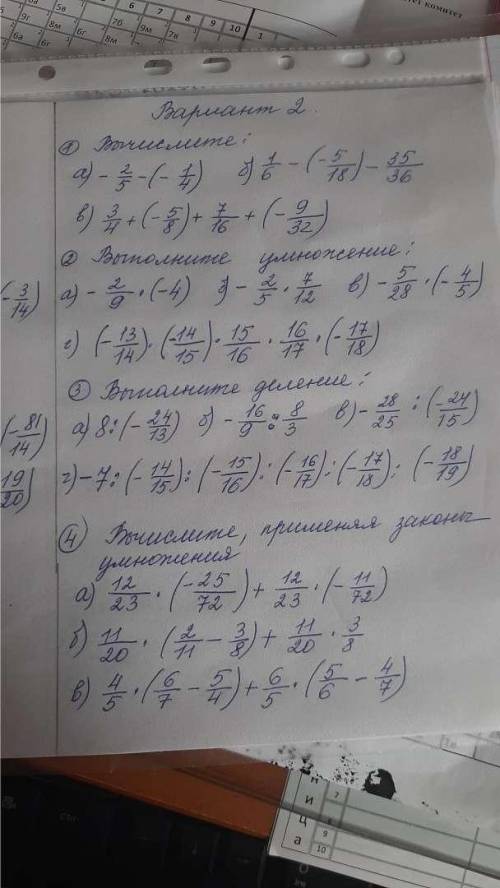 6 7 8 9 10 1
6а 5в
5б 9г 8м 7б 9м 7в
6а 6г 8м
комитет
Вариант 2.
① Вычислите:
а) -2/5 - (-1/4) б) 1/6 - (-5/18) - 35/36
в) 3/4 + (-5/8) + 7/16 + (-9/32)
② Выполните умножение:
(-3/14) а) -2/9 · (-4) б) -2/5 · 7/12 в) -5/28 · (-4/5)
г) (-13/14) · (-14/15) · 15/16 · 16/17 · (-17/18)
③ Выполните деление:
(-81/14) а) 8 : (-24/13) б) -16/9 : 8/3 в) -28/25 : (-24/15)
19/20) г) -7 : (-14/15) : (-15/16) : (-16/17) : (-17/18) : (-18/19)
④ Вычислите, применяя законы
умножения
а) 12/23 · (-25/72) + 12/23 · (-11/72)
б) 11/20 · (2/11 - 3/8) + 11/20 · 3/8
в) 4/5 · (6/7 - 5/4) + 6/5 · (5/6 - 4/7)
н 7
и 8
ц 9
а 10